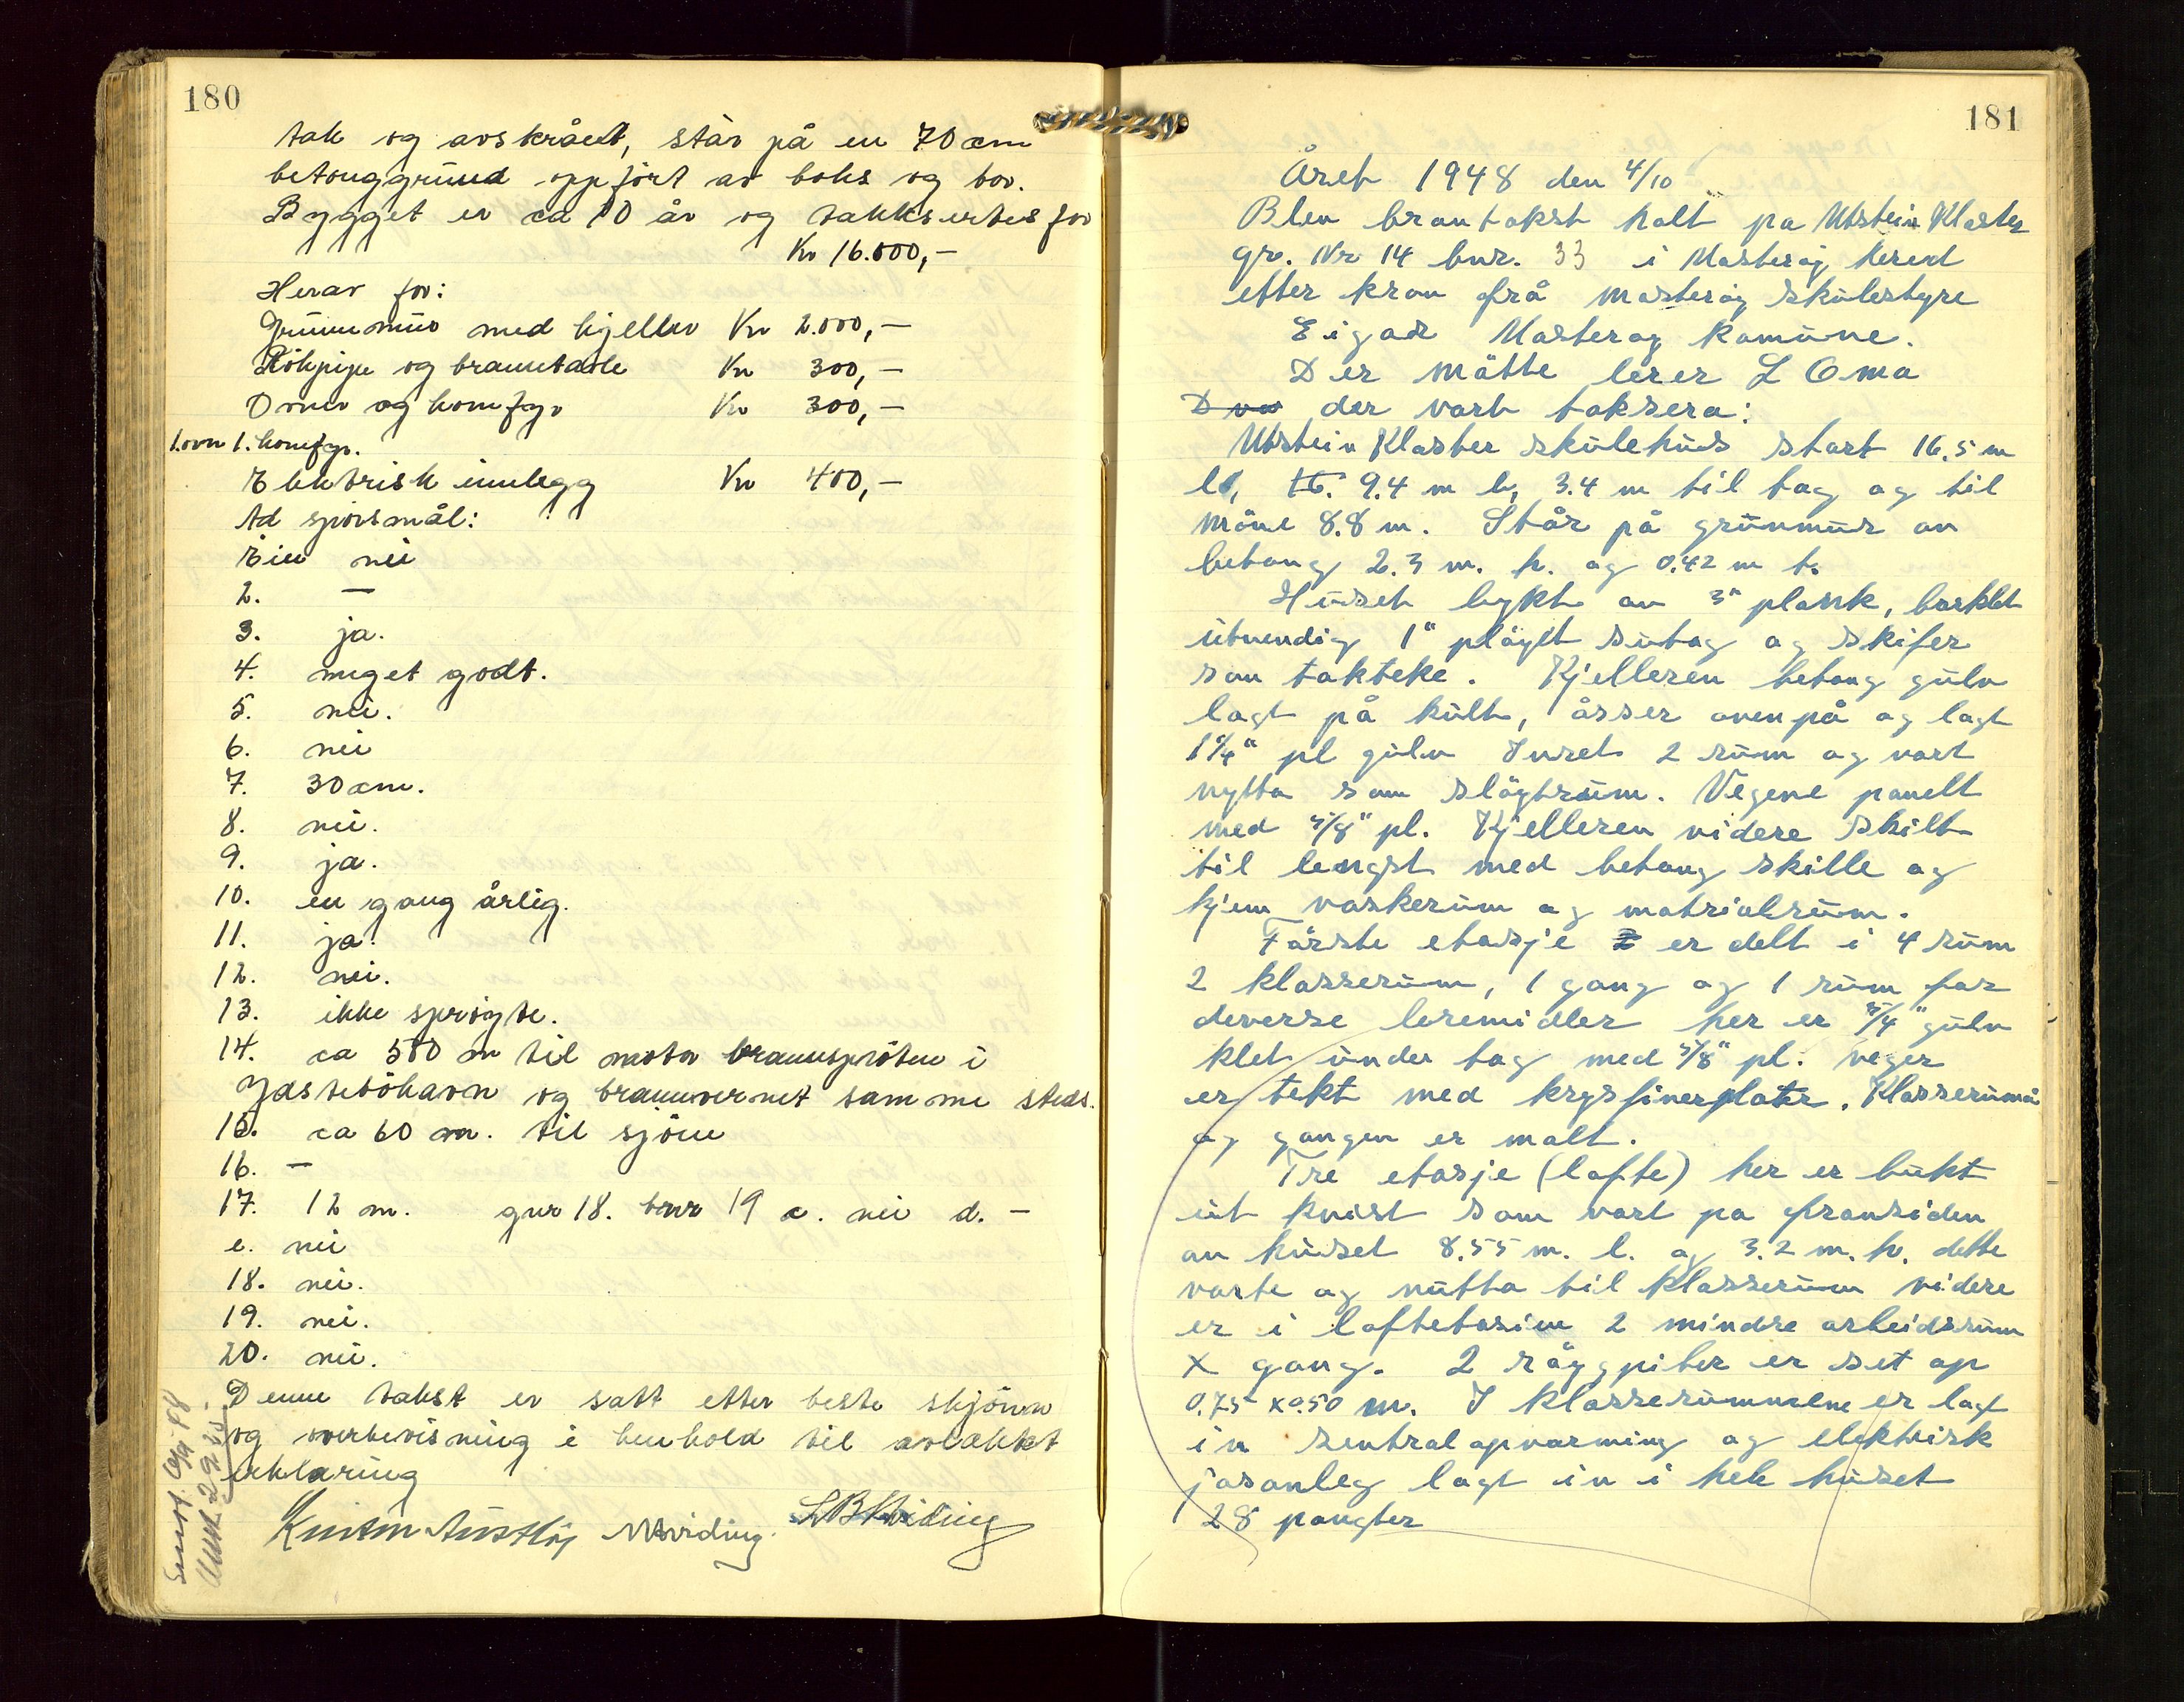 180
tak og avskrådt, står på en 70 cm
betonggrund oppfört av boks og bor.
Bygget er ca 10 år og takksertes for
Kr 16.000,-
Herav for:
Grunnmur med kjeller Kr 2.000,-
Rökpipe og branntavle Kr 300,-
Ovner og komfyr Kr 300,-
1.ovn 1. komfyr.
Elektrisk innlegg Kr 400,-
Ad spörsmål:
Ein nei
2. —
3. ja.
4. meget godt.
5. nei.
6. nei
7. 30 cm.
8. nei.
9. ja.
10. en gang årlig.
11. ja.
12. nei.
13. ikke spröyte.
14. ca 500 m til motor brannspröten i
og brannvernet samme steds.
15. ca 60 m. til sjöen
16. —
17. 12 m. gnr 18. bnr 19 c. nei d. —
e. nei
18. nei.
19. nei.
20. nei.
Denne takst er satt etter beste skjönn
og overbevisning i henhold til avlakt
erklæring
L B Hviding
181
Året 1948 den 4/10
Blev brantakst halt pa Utstein Kloster
gr. Nr 14 bnr. 33 i Mosteröy hered
etter krav frå mosteröy skulestyre
Eigar Mosteroy komune.
Der mötte lerer L Oma
D var der vart taksera:
Utstein Kloster skulehus stort 16.5 m
l, 9.4 m b, 3.4 m til tag og til
möne 8.8 m. Står på grunmur av
betong 2.3 m. h. og 0.42 m t.
Huset bykt av 3" plank, borklet
utvendig 1" plöyet sutag og skifer
som takteke. Kjelleren betong gulv
lagt på kult, åsser ovenpå og lagt
1 1/4" pl gulv Inret 2 rum og vart
nytta som slöydrum. Vegene panelt
med 5/8" pl. Kjelleren videre skilt
til lengst med betong skille og
kjem vaskerum og matrialrum.
Förste etasje er delt i 4 rum
2 klasserum, 1 gang og 1 rum for
deverse leremidler her er 5/4" gulv
klet under tag med 5/8" pl. veger
er tekt med krysfinerplater. Klasseruma
og gangen er malt.
Tre etasje (lofte) her er bukt
ut kvist som vart pa fransiden
av huset 8.55 m. l. og 3.2 m. h. dette
varte og nutta til klasserum videre
er i loftetasien 2 mindre arbeidsrum
x gang. 2 röyggpiber er set op
0.75 x 0.50 m. I klasserummene er lagt
in sentralopvarming og elektrisk
josanleg lagt in i hele huset
28 pongter